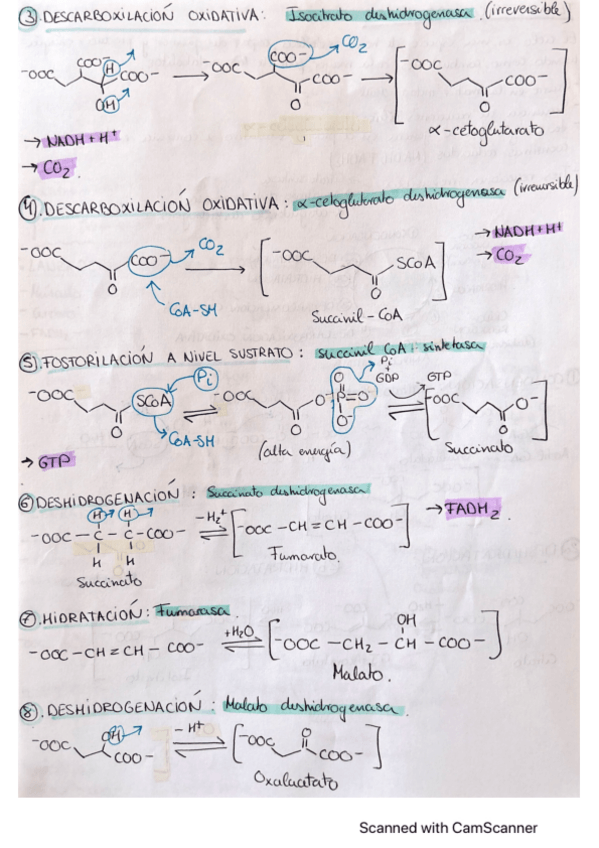 ③ DESCARBOXILACIÓN OXIDATIVA: Isocitrato deshidrogenasa (irreversible)
⁻OOC COO⁻ H COO⁻ OH → ⁻OOC COO⁻ → CO₂ COO⁻ O → [⁻OOC COO⁻ O]
α-cetoglutarato
→ NADH + H⁺
→ CO₂
④. DESCARBOXILACIÓN OXIDATIVA: α-cetoglutarato deshidrogenasa (irreversible)
⁻OOC COO⁻ → CO₂ O → [⁻OOC SCoA O]
→ NADH + H⁺
→ CO₂
CoA-SH
Succinil-CoA
⑤. FOSTORILACIÓN A NIVEL SUSTRATO: succinil CoA sintetasa
⁻OOC SCoA O Pi ⇌ ⁻OOC O O⁻ P=O O⁻ O⁻ Pi + GDP GTP ⇌ [⁻OOC O⁻ O]
CoA-SH
(alta energía)
Succinato
→ GTP
⑥ DESHIDROGENACIÓN: Succinato deshidrogenasa
H H
⁻OOC - C - C - COO⁻ -H₂⁺ ⇌ [⁻OOC - CH = CH - COO⁻] → FADH₂
H H
Succinato
Fumarato
⑦. HIDRATACIÓN: Fumarasa
⁻OOC - CH = CH - COO⁻ +H₂O ⇌ [⁻OOC - CH₂ - CH - COO⁻] OH
Malato.
⑧. DESHIDROGENACIÓN: Malato deshidrogenasa
⁻OOC OH COO⁻ - H⁺ ⇌ [⁻OOC O COO⁻]
Oxalacetato
Scanned with CamScanner